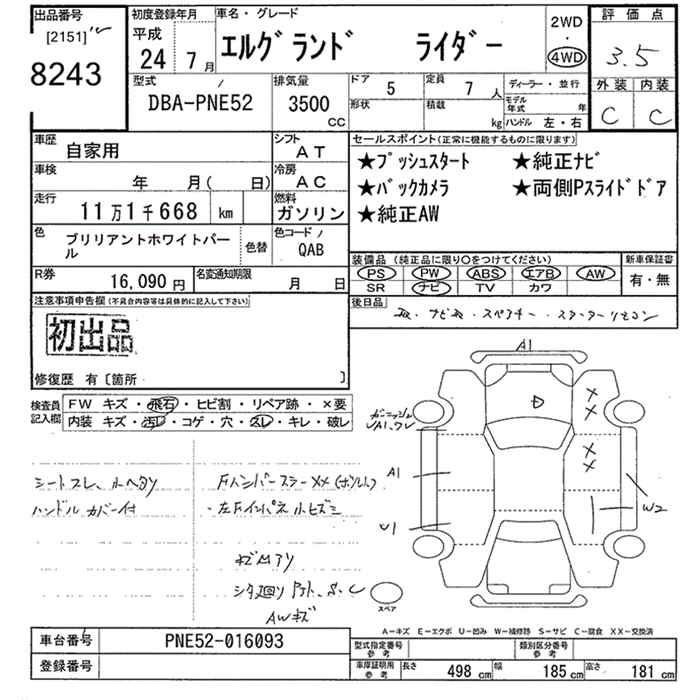 出品番号 初度登録年月 車名・グレード 2WD 評価点
[2151] 平成 エルグランド ライダー ・ 3.5
8243 24 7月 4WD 外装 内装
型式 排気量 ドア 5 定員 7人 ディーラー・並行 C C
DBA-PNE52 3500 cc 形状 積載 kg モデル年式 年
ハンドル 左・右
車歴 自家用 シフト AT セールスポイント(正常に機能するものに限ります)
車検 年 月( 日) 冷房 AC ★プッシュスタート ★純正ナビ
走行 11万1千668 km 燃料 ガソリン ★バックカメラ ★両側Pスライドドア
★純正AW
色 ブリリアントホワイトパール 色替 色コード QAB
装備品(純正品に限り○をつけてください) 新車保証書
R券 16,090円 名変通知期限 月 日 PS PW ABS エアB AW 有・無
SR ナビ TV カワ
注意事項申告欄(不具合内容等は具体的に記入して下さい) 後日品
初出品 ナビ スペアキー・スターターリモコン
修復歴 有〔箇所 〕
検査員記入欄 FW キズ・飛石・ヒビ割・リペア跡・×要
内装 キズ・汚レ・コゲ・穴・スレ・キレ・破レ
A1
ガーニッシュ
A1
U1
W2
XX
XX
シートスレ、小ヘタリ FバンパーステーXX(ボルト)
ハンドルカバー付 ・左Fインパネ小ヒズミ
AWキズ
スペア
A-キズ E-エクボ U-凹み W-補修跡 S-サビ C-腐食 XX-交換済
車台番号 PNE52-016093 型式指定番号 参考 類別区分番号 参考
登録番号 車庫証明用 参考 長さ 498cm 幅 185cm 高さ 181cm